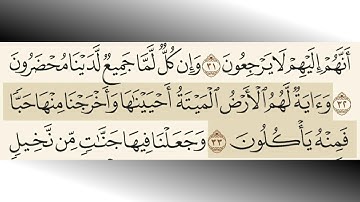 أَنَّهُمْ إِلَيْهِمْ لَا يَرْجِعُونَ ٣١ وَإِن كُلٌّ لَّمَّا جَمِيعٌ لَّدَيْنَا مُحْضَرُونَ
٣٢ وَءَايَةٌ لَّهُمُ ٱلْأَرْضُ ٱلْمَيْتَةُ أَحْيَيْنَٰهَا وَأَخْرَجْنَا مِنْهَا حَبًّا
فَمِنْهُ يَأْكُلُونَ ٣٣ وَجَعَلْنَا فِيهَا جَنَّٰتٍ مِّن نَّخِيلٍ